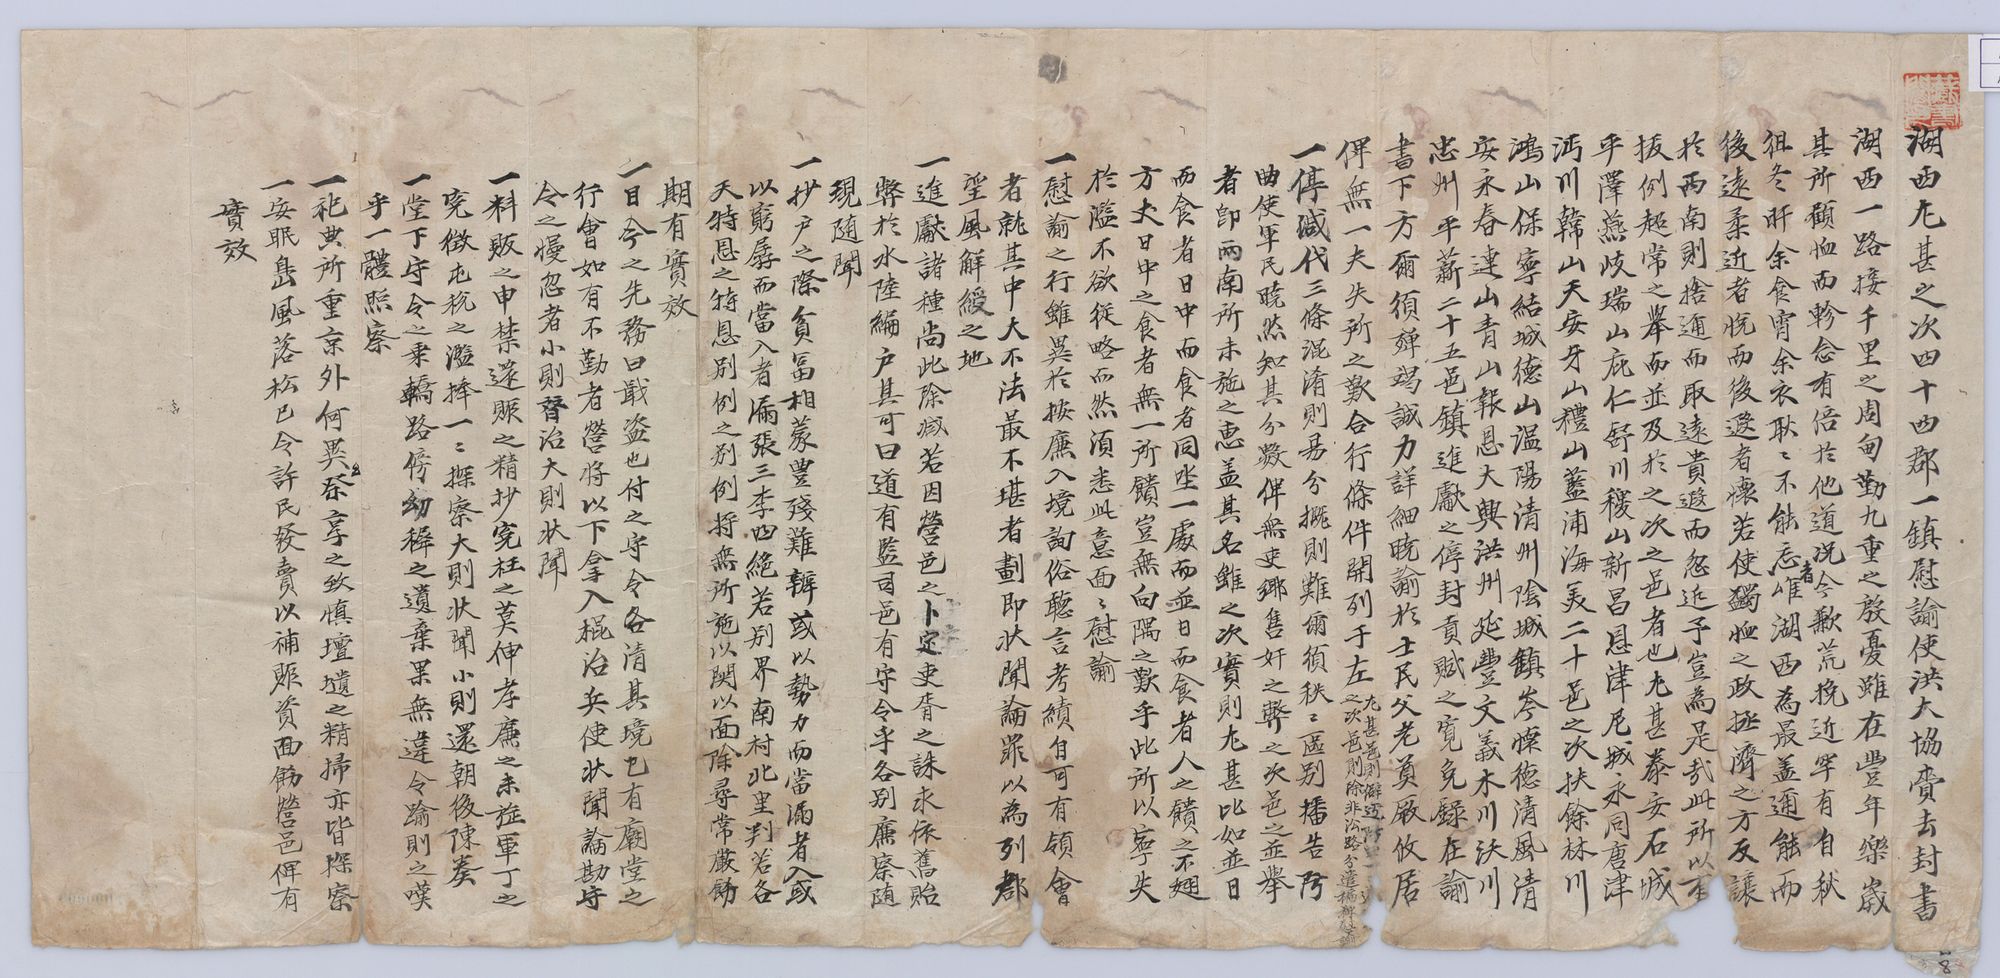 湖西尤甚之次四十四郡一鎮慰諭使洪大協賷去封書
湖西一路接千里之周甸勤九重之殷憂雖在豊年樂歲
其所顧恤而軫念有倍於他道况今歉荒挽近罕有自秋
徂冬旰余食宵余衣耿〻不能忘者惟湖西為最盖邇能而
後遠柔近者恱而後遐者懷若使蠲恤之政拯濟之方反讓
於兩南則捨邇而取遠貴遐而忽近予豈為是哉此所以
拔例超常之舉而並及於之次之邑者也尤甚泰安石城
平澤燕岐瑞山庇仁舒川稷山新昌恩津尼城永同唐津
沔川韓山天安牙山禮山藍浦海美二十邑之次扶餘林川
鴻山保寧結城德山溫陽清州陰城鎮岑懷德清風清
安永春連山青山報恩大興洪州延豊文義木川沃川
忠州平薪二十五邑鎮進獻之停封貢賦之寬免錄在諭
書下方爾須殫竭誠力詳細曉諭於士民父老莫厥攸居
俾無一夫失所之歎合行條件開列于左
之次邑則除非沿路分遣
一停減代三條混淆則易分擺則難爾須秩〻區別播告
曲使軍民曉然知其分數俾無吏鄉售奸之弊之次邑之並舉
者卽兩南所未施之惠盖其名雖之次實則尤甚比如並日
而食者日中而食者同坐一處而並日而食者人之饋之不翅
方丈日中之食者無一所饋豈無向隅之歎乎此所以寧失
於濫不欲從略而然須悉此意面〻慰諭
一慰諭之行雖異於按廉入境詢俗聽言考績自可有領會
者就其中大不法最不堪者劃即狀聞論罪以為列郡
望風解綬之地
一進獻諸種尚此除减若因營邑之卜定吏胥之誅求依舊貽
弊於水陸編户其可曰道有監司邑有守令乎各別廉察随
現随聞
一抄户之際貧富相蒙豊殘難辨或以勢力而當漏者入或
以窮孱而當入者漏張三李四絶若别界南村北里判若各
天特恩之特恩別例之別例將無所施以関以面除尋常嚴飭
期有實效
一目今之先務曰戢盗也付之守令各清其境已有廟堂之
行會如有不勤者營將以下拿入棍治兵使狀聞論勘守
令之慢忽者小則督治大則狀聞
一料販之申禁還賑之精抄寃枉之莫伸孝廉之未旋軍丁之
寃徵屯稅之濫捧一〻探察大則狀聞小則還朝後陳奏
一堂下守令之乗轎路傍幼穉之遺棄果無違令踰則之嘆
乎一體照察
一祀典所重京外何異祭享之致慎壇壝之精掃亦皆探察
一安眠島風落松已令許民發賣以補賑資面飭營邑俾有
實效